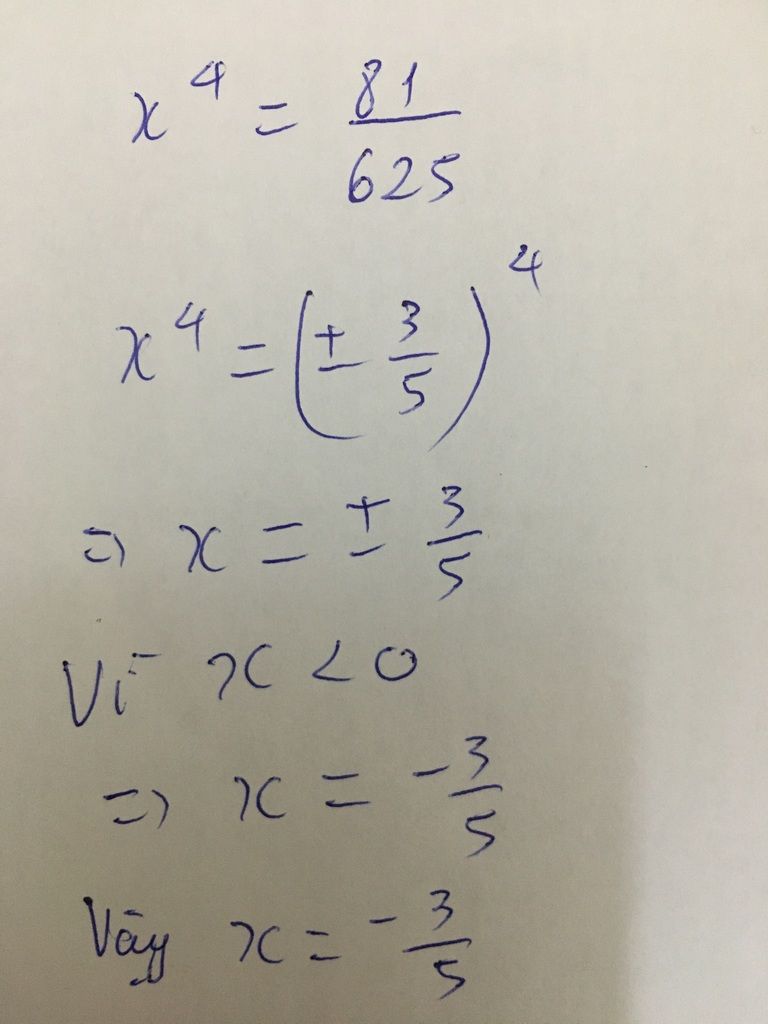 x⁴ = 81/625
x⁴ = (± 3/5)⁴
⇒ x = ± 3/5
Vì x < 0
⇒ x = -3/5
Vậy x = -3/5